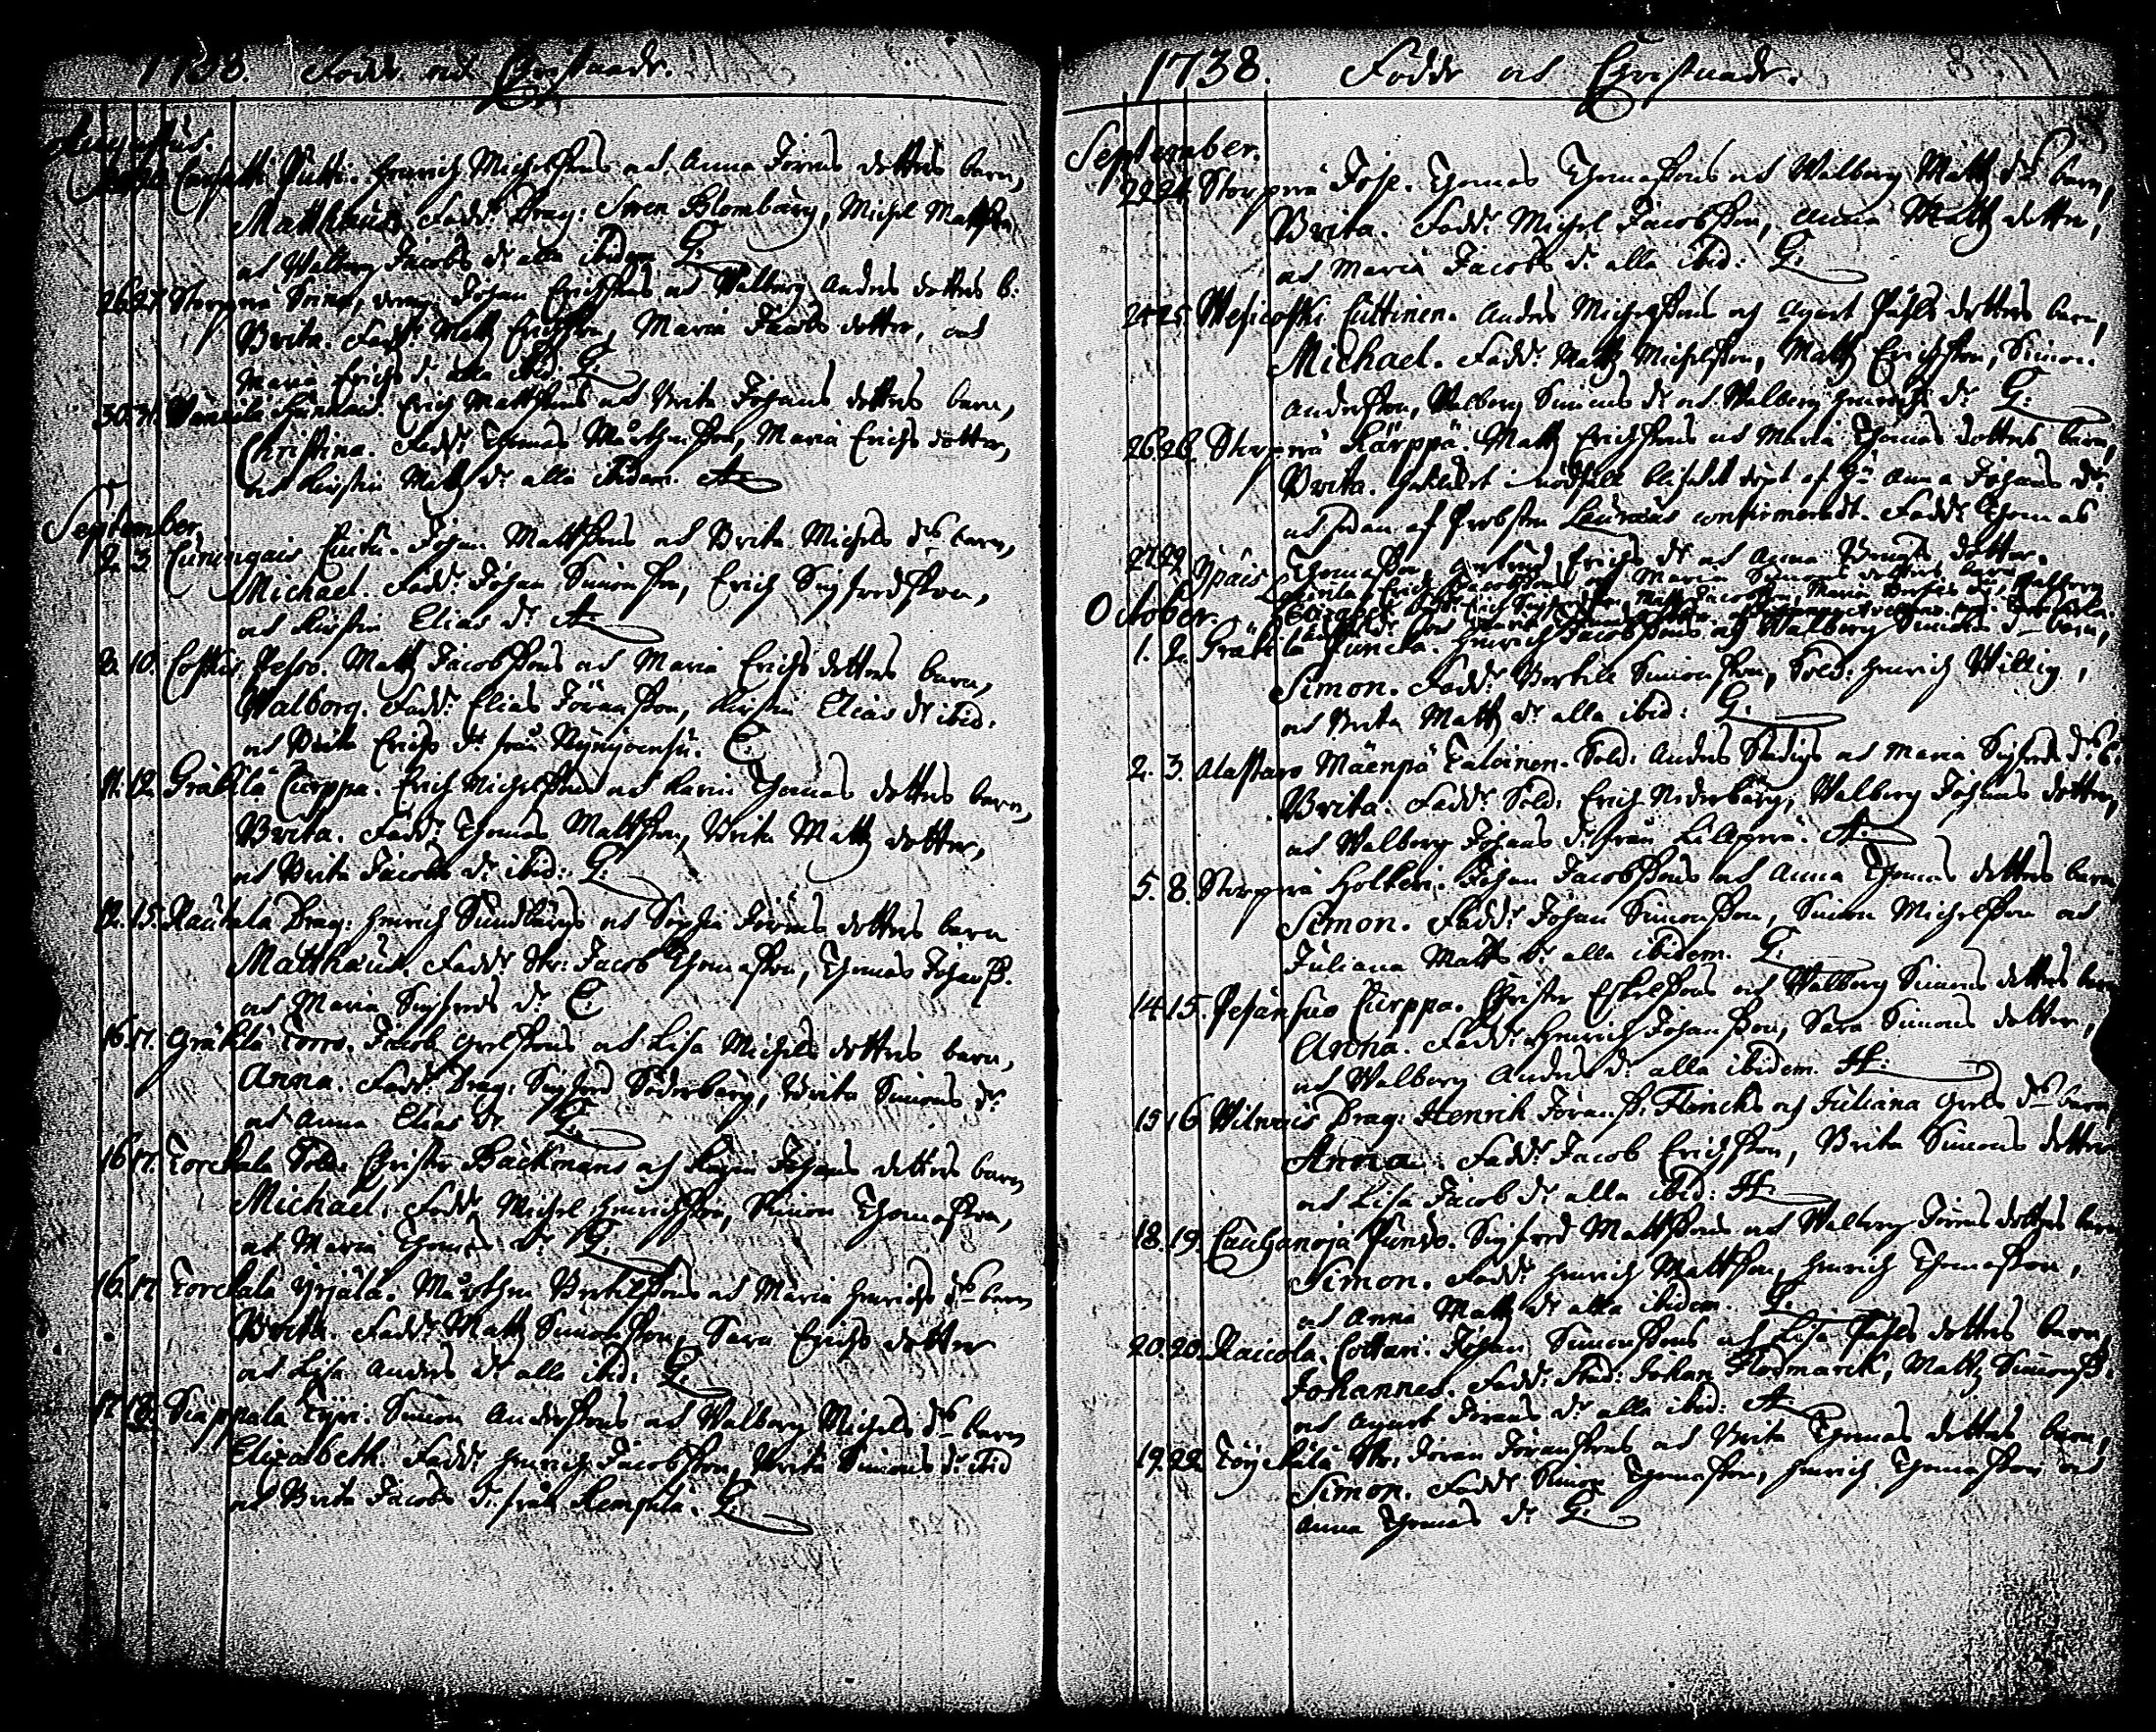 1738. Födde och Christnade.
Augustus.
Putti. Henrich Michelssons och Anna Jörens dotters barn,
Matthæus. Fadd: Drag: Sven Blombärg, Michel Mattsson
och Walborg Jacobs d: alla ibidem G:
26. 27. Storperä Johan Erichssons och Walborg Anders dotters b:
Brita. Fadd: Matz Erichsson, Maria Jacobs dotter, och
Maria Erichs d: alla ibid: G:
30. 31. Erich Mattssons och Brita Johans dotters barn,
Christina. Fadd: Thomas Mårthensson, Maria Erichs dotter,
och Kirstin Matz d: alla ibidem. A
September.
2. 3. Johan Mattssons och Brita Michels d: barn,
Michael. Fadd: Johan Simonsson, Erich Sigfredsson,
och Kirstin Elias d: A
8. 10. Matz Jacobssons och Maria Erichs dotters barn,
Walborg. Fadd: Elias Jöransson, Kirstin Elias d: ibid:
och Brita Erichs d: från C:
11. 12. Gräkilä Curppa. Erich Michelssons och Karin Thomas dotters barn,
Brita. Fadd: Thomas Mattsson, Brita Matz dotter,
och Brita Jacobs d: ibid: G:
12. 15. Rautala Drag: Henrich Sundbärgs och Sophia Jörens dotters barn
Matthæus. Fadd: Jacob Thomasson, Thomas Johans.
och Maria Sigfreds d: C:
16. 17. Gräkilä Torro. Jacob och Lisa Michels dotters barn,
Anna. Fadd: Drag: Sigfred Söderbärg, Brita Simons d:
och Anna Elias d: G:
16. 17. Torckala Sold: Christer Bäckmans och Karin Johans dotters barn
Michael. Fadd: Michel Henrichsson, Simon Thomasson,
och Maria Thomas d: G:
16. 17. Torckala Yrjälä. Mårthen Bertilssons och Maria Henrichs d: barn
Brita. Fadd: Matz Simonsson, Sara Erichs dotter
och Lisa Anders d: alla ibid: G:
17. 18. Sieppala Simon Anderssons och Walborg Michels d: barn
Elizabeth. Fadd: Henrich Jacobsson, Brita Simons d: ibid
och Brita Jacobs d: från G:
1738. Födde och Christnade.
September.
22. 24. Storperä Thomas Thomassons och Walborg Matz d: barn,
Brita. Fadd: Michel Jacobsson, Anna Matz dotter,
och Maria Jacobs d: alla ibid: G:
24. 25. Wesicoski Cuttinen. Anders Michelssons och Agnet Påhls dotters barn,
Michael. Fadd: Matz Michelsson, Matz Erichsson, Simon
Andersson, Walborg Simons d: och Walborg Henrichs d: G:
26. 26. Storperä Kärppä. Matz Erichssons och Maria Thomas dotters barn,
Brita. nödfall döpt af Anna Johans d:
och sedan af Probsten Lauræus confirmeradt. Fadd: Thomas
Thomasson, Erichs d: och Anna dotter.
27. 29. Ypäis Erich Jacobssons och Maria Simons dotters barn
October.
1. 2. Gräkilä Puncka. Henrich Jacobssons och Walborg Simons d: barn,
Simon. Fadd: Bertill Simonsson, Sold: Henrich Willig,
och Brita Matz d: alla ibid: G:
2. 3. Alastaro Mäenpä Taloinen. Sold: Anders Stadigs och Maria Sigfreds d: b:
Brita. Fadd: Sold: Erich Nederbärg, Walborg Johans dotter,
och Walborg Johans d: från Lillperä. A:
5. 8. Storperä Holkeri. Johan Jacobssons och Anna Thomas dotters barn
Simon. Fadd: Johan Simonsson, Simon Michelsson och
Juliana Matts d: alla ibidem. G:
14. 15. Pesänsuo Curppa. Christer Eskelssons och Walborg Simons dotters barn
Anna. Fadd: Henrich Johansson, Sara Simons dotter,
och Walborg Anders d: alla ibidem. H:
15 16 Wilwois Drag: Henrik Jörans: Flincks och Juliana d: barn,
Anna. Fadd: Jacob Erichsson, Brita Simons dotter
och Lisa Jacob d: alla ibid: H
18. 19. Cauhanoja Punvo. Sigfred Mattssons och Walborg Jörens dotters barn
Simon. Fadd: Henrich Mattsson, Henrich Thomasson,
och Anna Matz d: alla ibidem. G:
20. 20. Raicola. Cottari. Johan Simonssons och Lisa Påhls dotters barn,
Johannes. Fadd: Stud: Johan Flodmarck, Matz Simonss:
och Agnet Jörans d: alla ibid: A
19. 22. Jöran Jöranssons och Brita Thomas dotters barn,
Simon. Fadd: Simon Thomasson, Henrich Thomasson och
Anna Thomas d: G: